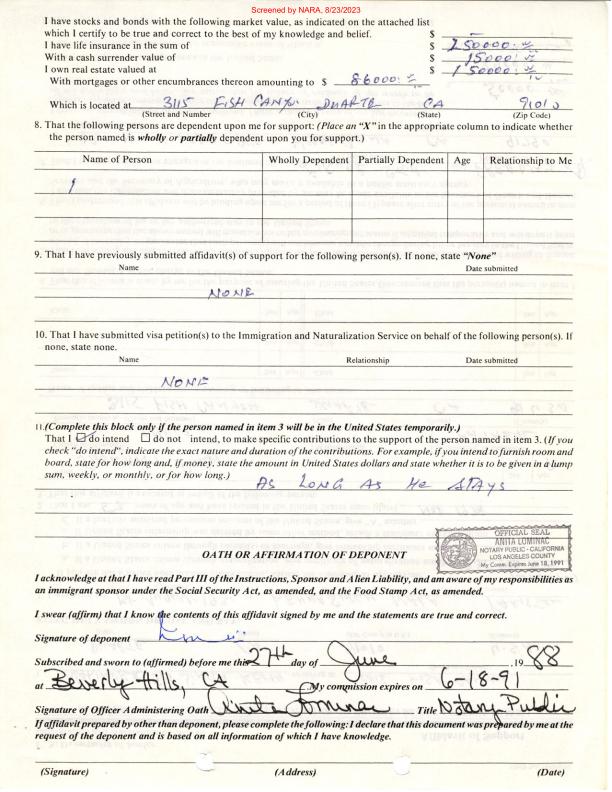 Screened by NARA, 8/23/2023
I have stocks and bonds with the following market value, as indicated on the attached list
which I certify to be true and correct to the best of my knowledge and belief. $ —
I have life insurance in the sum of $ 250000.
With a cash surrender value of $ 15000.
I own real estate valued at $ 150000.
With mortgages or other encumbrances thereon amounting to $ 86000.
Which is located at 3115 FISH CANYON DUARTE CA 91010
(Street and Number) (City) (State) (Zip Code)
8. That the following persons are dependent upon me for support: (Place an "X" in the appropriate column to indicate whether
the person named is wholly or partially dependent upon you for support.)
Name of Person Wholly Dependent Partially Dependent Age Relationship to Me
9. That I have previously submitted affidavit(s) of support for the following person(s). If none, state "None"
Name Date submitted
NONE
10. That I have submitted visa petition(s) to the Immigration and Naturalization Service on behalf of the following person(s). If
none, state none.
Name Relationship Date submitted
NONE
11.(Complete this block only if the person named in item 3 will be in the United States temporarily.)
That I ☑ do intend ☐ do not intend, to make specific contributions to the support of the person named in item 3. (If you
check "do intend", indicate the exact nature and duration of the contributions. For example, if you intend to furnish room and
board, state for how long and, if money, state the amount in United States dollars and state whether it is to be given in a lump
sum, weekly, or monthly, or for how long.)
AS LONG AS He STAYS
OFFICIAL SEAL
ANITA LOMINAC
NOTARY PUBLIC - CALIFORNIA
LOS ANGELES COUNTY
My Comm. Expires June 18, 1991
OATH OR AFFIRMATION OF DEPONENT
I acknowledge at that I have read Part III of the Instructions, Sponsor and Alien Liability, and am aware of my responsibilities as
an immigrant sponsor under the Social Security Act, as amended, and the Food Stamp Act, as amended.
I swear (affirm) that I know the contents of this affidavit signed by me and the statements are true and correct.
Signature of deponent
Subscribed and sworn to (affirmed) before me this 27th day of June ,19 88
at Beverly Hills, CA My commission expires on 6-18-91
Signature of Officer Administering Oath Anita Lominac Title Notary Public
If affidavit prepared by other than deponent, please complete the following: I declare that this document was prepared by me at the
request of the deponent and is based on all information of which I have knowledge.
(Signature) (Address) (Date)